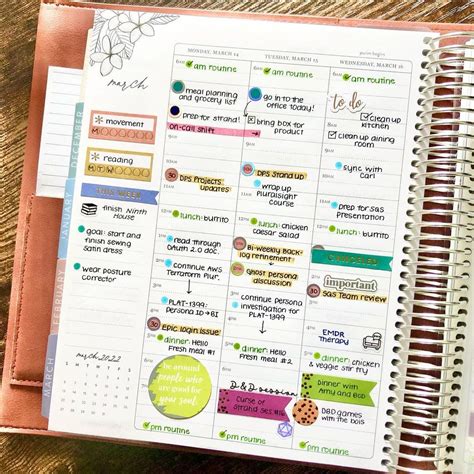 march
MONDAY, MARCH 14
TUESDAY, MARCH 15
WEDNESDAY, MARCH 16
purim begins
am routine
meal planning
and grocery list
prep for strand!
on-call shift
DPS Projects
Updates!
lunch: burrito
read through
OAuth 2.0 doc.
continue AWS
Terraform Plur.
PLAT-1399:
Persona ID → BI
Epic login issue!
dinner: Hello
Fresh meal #1
be around
people who
are good for
your soul.
pm routine
am routine
go in to the
office today!
bring box for
product
DPS Stand up
wrap up
Pluralsight
course
lunch: chicken
caesar salad
Bi-weekly Back-
log refinement
Ghost persona
discussion
continue
investigation
for PLAT-1399
dinner: Hello
Fresh meal #2
D&D session
Curse of
Strahd ses #16
pm routine
am routine
to do
clean up
kitchen
clean up dining
room
sync with
Carl
prep for SAS
Presentation
lunch: burrito
CANCELLED
important
SAS Team review
EMDR
Therapy
dinner: chicken
& veggie stir fry
Dinner with
Amy and Bob
DBD games
with the bois
pm routine
movement
reading
THIS WEEK
finish Ninth
House
goal: start and
finish sewing
satin dress
wear posture
corrector
march 2022
S M T W T F S
DECEMBER
JANUARY
FEBRUARY
MARCH